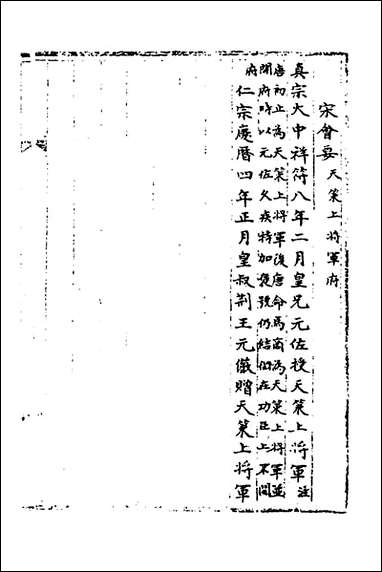 宋會要天策上將軍府
真宗大中祥符八年二月皇兄元佐授天策上將軍注
唐初止為天策上將軍後唐命馬商為天策上將軍並
開府時以元佐久疾特加優號仍結銜在功臣上不開
府
仁宗慶曆四年正月皇叔荊王元儼贈天策上將軍